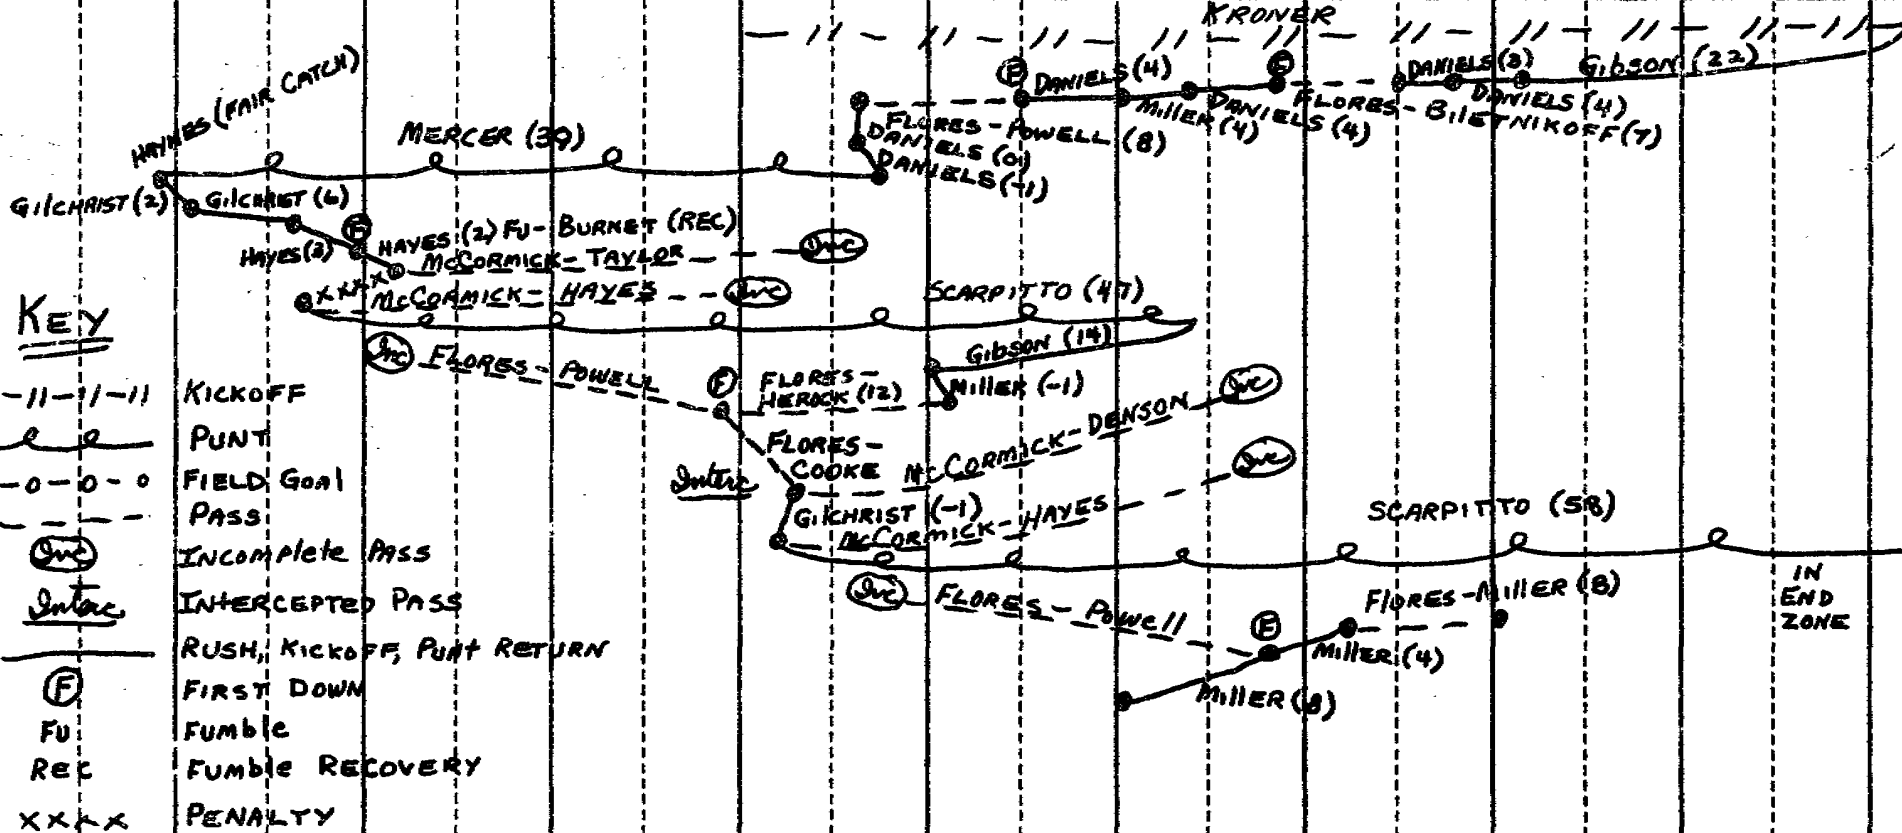 KRONER
HAYNES (FAIR CATCH)
MERCER (39)
F DANIELS (4)
F
DANIELS (3)
Gibson (22)
MILLER (4)
DANIELS (4)
FLORES - BILETNIKOFF (7)
DANIELS (4)
FLORES - POWELL (8)
DANIELS (0)
DANIELS (-1)
GILCHRIST (2)
GILCHRIST (6)
F
HAYES (3)
HAYES (2) FU - BURNET (REC)
McCORMICK - TAYLOR
Inc
XXXX
McCORMICK - HAYES
Inc
SCARPITTO (47)
Gibson (14)
Inc
FLORES - POWELL
F
FLORES -
HEROCK (12)
MILLER (-1)
FLORES -
COOKE
Interc
McCORMICK - DENSON
Inc
GILCHRIST (-1)
McCORMICK - HAYES
Inc
SCARPITTO (58)
IN
END
ZONE
Inc
FLORES - Powell
F
FLORES - MILLER (8)
MILLER (4)
MILLER (8)
KEY
KICKOFF
PUNT
FIELD GOAL
PASS
Inc INCOMPLETE PASS
Interc INTERCEPTED PASS
RUSH, KICKOFF, PUNT RETURN
F FIRST DOWN
FU FUMBLE
REC FUMBLE RECOVERY
XXXX PENALTY